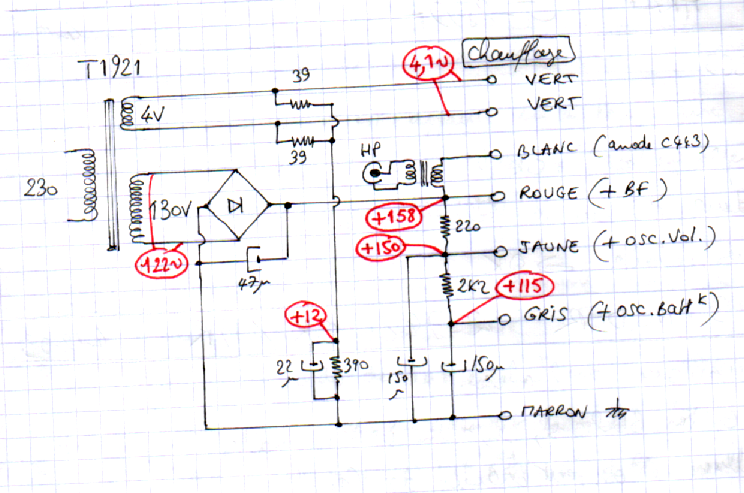 Chauffage
T1921
39
4,1~
VERT
4V
VERT
39
HP
BLANC (anode C443)
230
130V
ROUGE (+ BF)
+158
220
+150
JAUNE (+ osc. Vol.)
122~
47µ
2K2
+115
GRIS (+ osc. Batt^t)
+12
22 µ
390
150 µ
150µ
MARRON